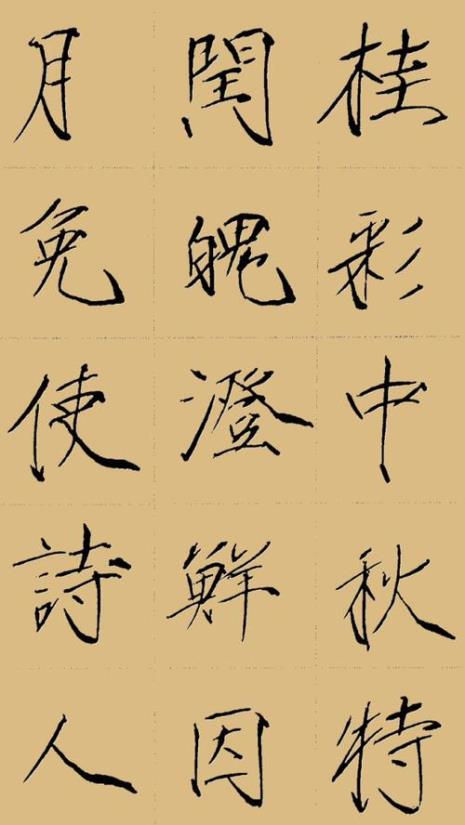 桂彩中秋特
閏魄澄鮮因
月免使詩人